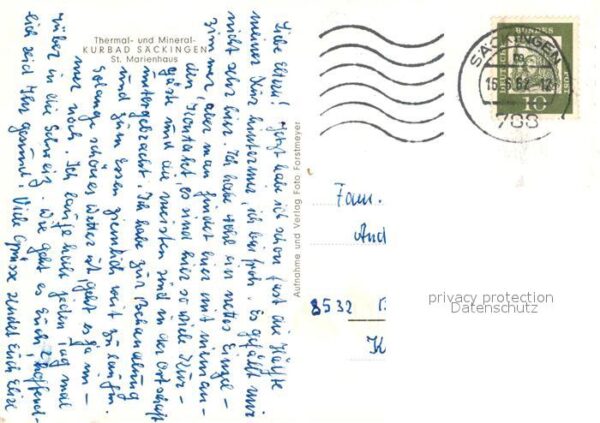 Thermal- und Mineral-
KURBAD SÄCKINGEN
St. Marienhaus
Liebe Eltern! Jetzt habe ich schon fast die Hälfte
meiner Kur hinter mir, ich bin froh. Es gefällt mir
nicht sehr hier. Ich habe wohl ein nettes Einzel-
zimmer, aber man findet hier mit nieman-
den Kontakt, es sind hier so viele Kur-
gäste und die meisten sind in der Ortschaft
untergebracht. Ich habe zur Behandlung
und zum Essen ziemlich weit zu laufen.
Solange schönes Wetter ist, geht es ja im-
mer noch. Ich laufe halt jeden Tag mal
rüber in die Schweiz. Wie geht es Euch, hoffent-
lich seid Ihr gesund! Viele Grüsse sendet Euch Elise
Aufnahme und Verlag Foto Forstmeyer
DEUTSCHE BUNDESPOST
10
SÄCKINGEN
788
Fam.
And
8532
privacy protection
Datenschutz